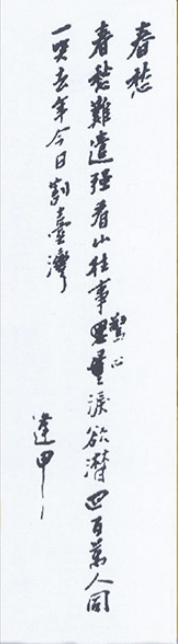 春愁
春愁難遣强看山往事思量淚欲潸四百萬人同
驚心
一哭去年今日割臺灣
逢甲